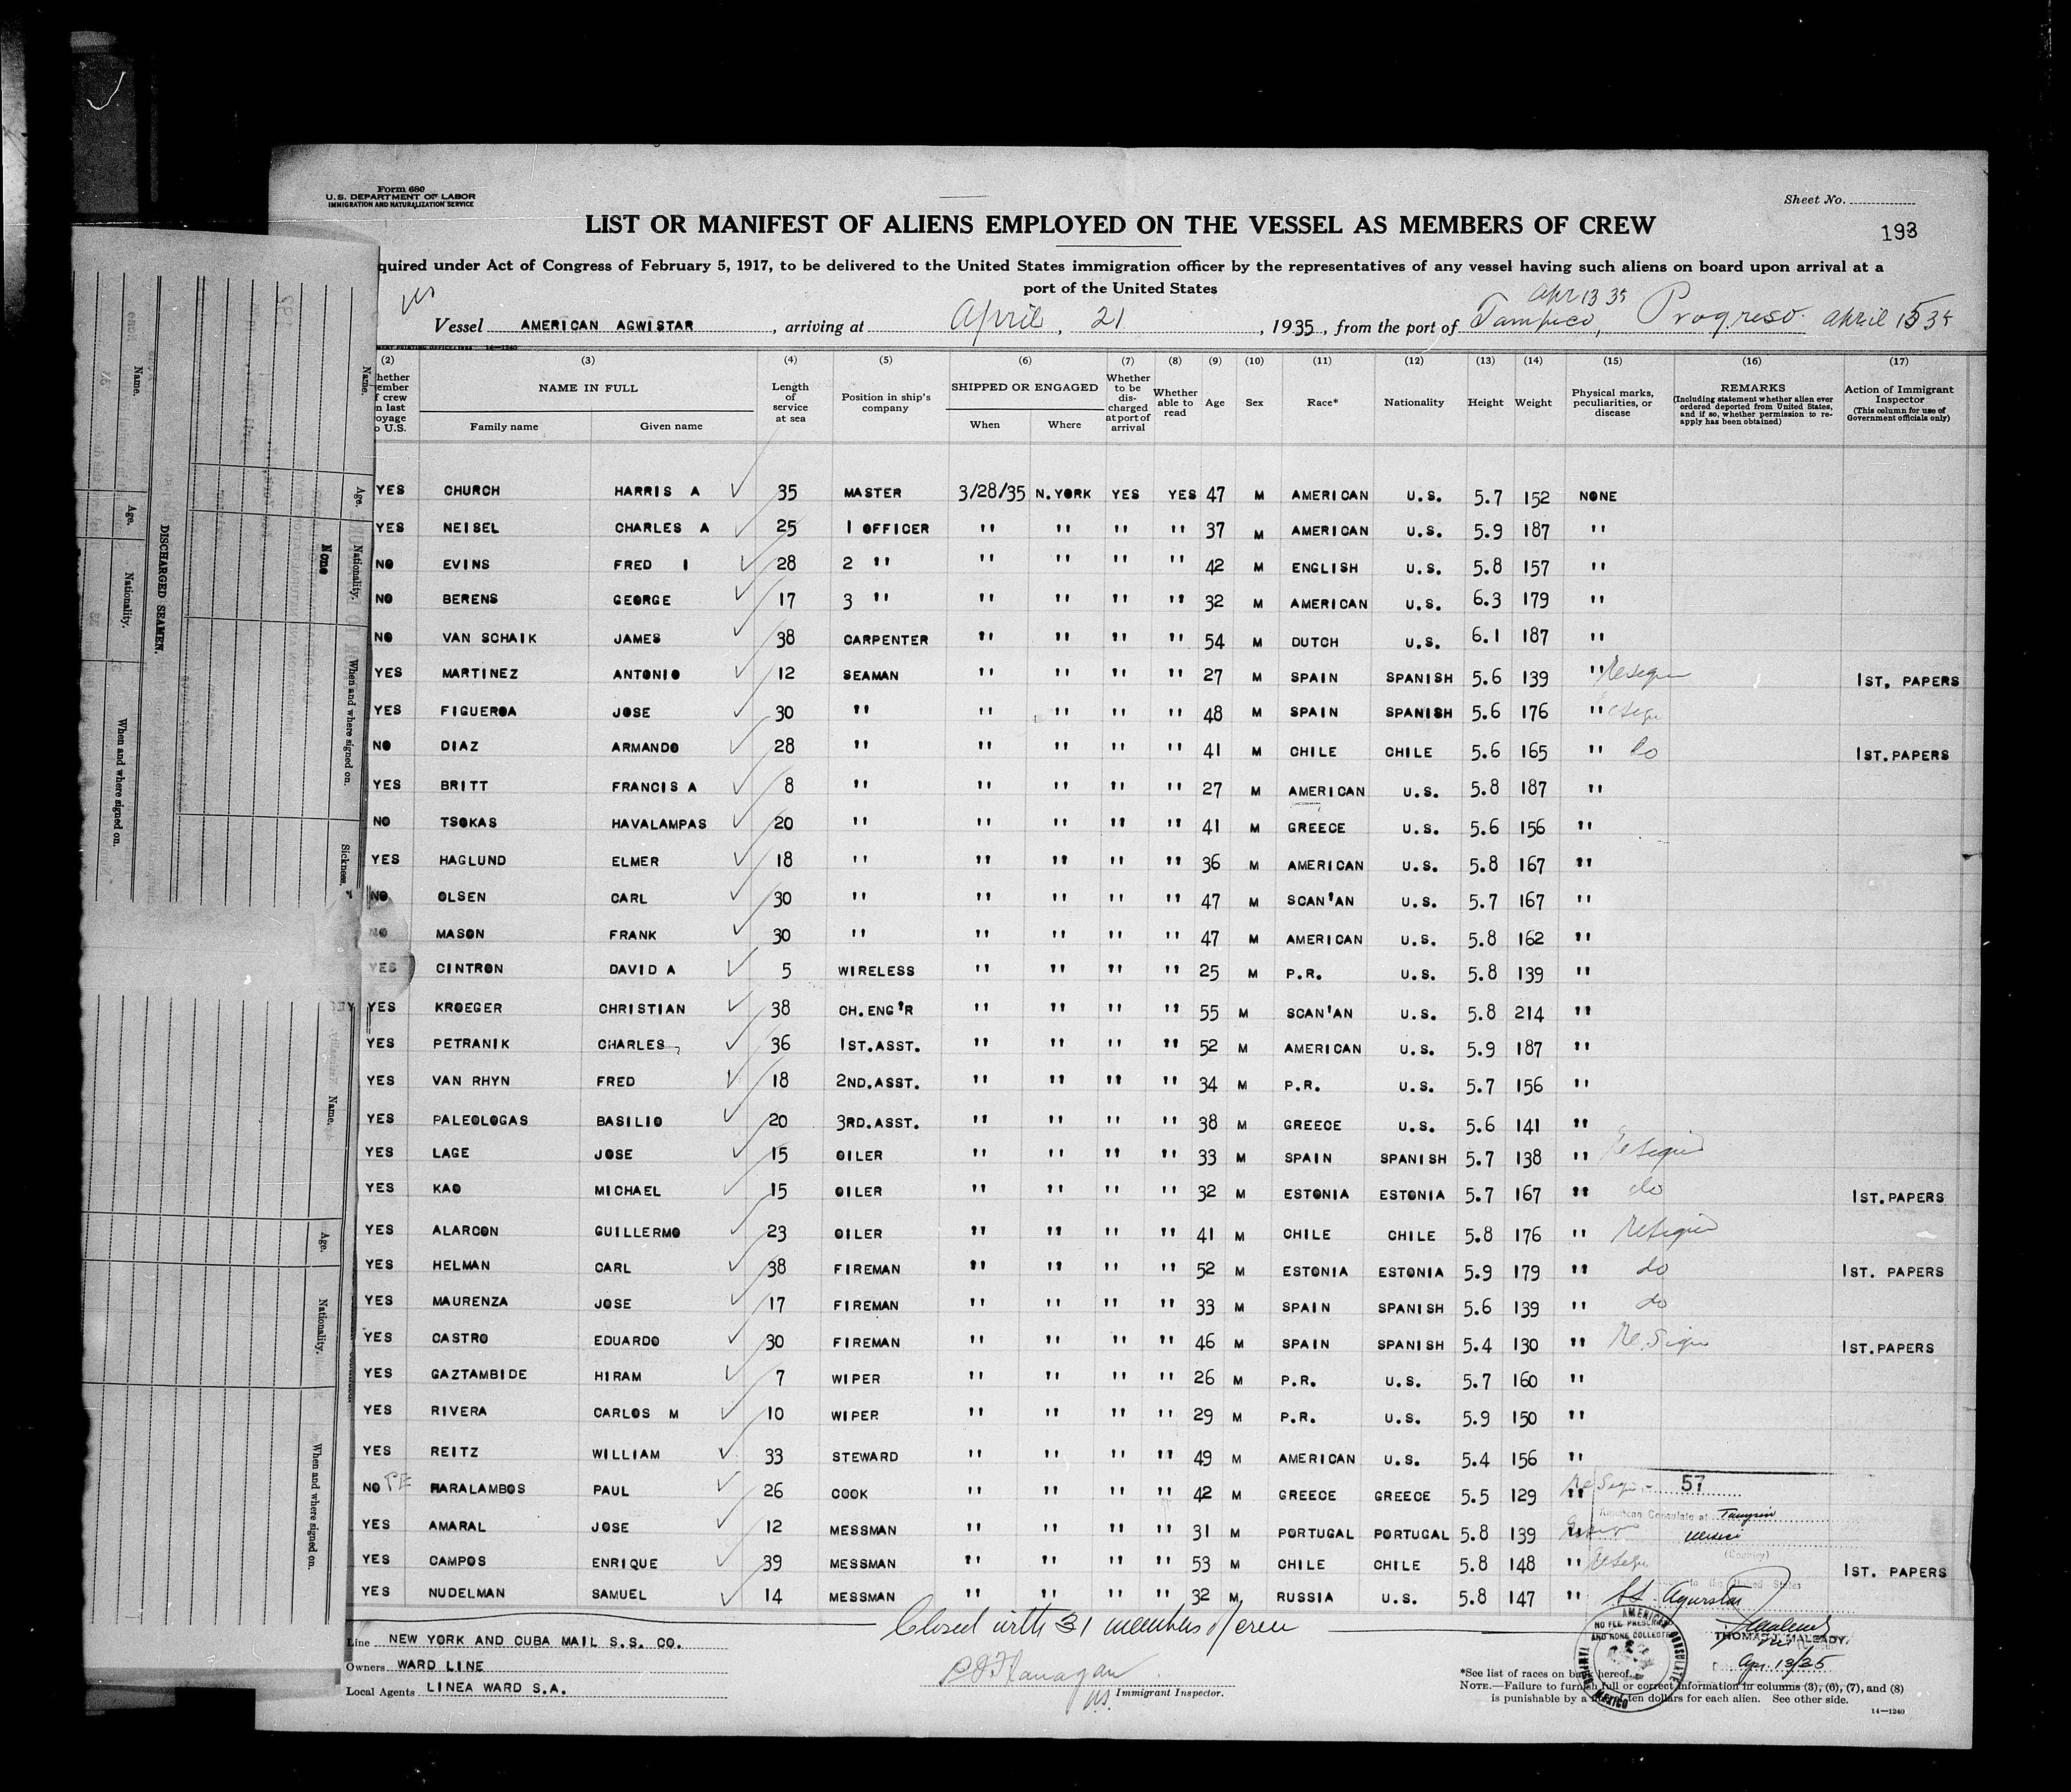 Form 680
U.S. DEPARTMENT OF LABOR
IMMIGRATION AND NATURALIZATION SERVICE
Sheet No.
LIST OR MANIFEST OF ALIENS EMPLOYED ON THE VESSEL AS MEMBERS OF CREW
193
quired under Act of Congress of February 5, 1917, to be delivered to the United States immigration officer by the representatives of any vessel having such aliens on board upon arrival at a
port of the United States
Apr 13 35
Vessel AMERICAN AGWISTAR, arriving at April, 21, 1935, from the port of Tampico, Progreso April 15 35
(2) (3) (4) (5) (6) (7) (8) (9) (10) (11) (12) (13) (14) (15) (16) (17)
NAME IN FULL
Family name Given name
Length of service at sea
Position in ship's company
SHIPPED OR ENGAGED
When Where
Whether to be discharged at port of arrival
Whether able to read
Age Sex Race* Nationality Height Weight
Physical marks, peculiarities, or disease
REMARKS
(Including statement whether alien ever ordered deported from United States, and if so, whether permission to re-apply has been obtained)
Action of Immigrant Inspector
(This column for use of Government officials only)
YES CHURCH HARRIS A 35 MASTER 3/28/35 N.YORK YES YES 47 M AMERICAN U.S. 5.7 152 NONE
YES NEISEL CHARLES A 25 1 OFFICER " " " " 37 M AMERICAN U.S. 5.9 187 "
NO EVINS FRED I 28 2 " " " " " 42 M ENGLISH U.S. 5.8 157 "
NO BERENS GEORGE 17 3 " " " " " 32 M AMERICAN U.S. 6.3 179 "
NO VAN SCHAIK JAMES 38 CARPENTER " " " " 54 M DUTCH U.S. 6.1 187 "
YES MARTINEZ ANTONIO 12 SEAMAN " " " " 27 M SPAIN SPANISH 5.6 139 " 1ST. PAPERS
YES FIGUEROA JOSE 30 " " " " " 48 M SPAIN SPANISH 5.6 176 "
NO DIAZ ARMANDO 28 " " " " " 41 M CHILE CHILE 5.6 165 " do 1ST.PAPERS
YES BRITT FRANCIS A 8 " " " " " 27 M AMERICAN U.S. 5.8 187 "
NO TSOKAS HAVALAMPAS 20 " " " " " 41 M GREECE U.S. 5.6 156 "
YES HAGLUND ELMER 18 " " " " " 36 M AMERICAN U.S. 5.8 167 "
NO OLSEN CARL 30 " " " " " 47 M SCAN'AN U.S. 5.7 167 "
NO MASON FRANK 30 " " " " " 47 M AMERICAN U.S. 5.8 162 "
YES CINTRON DAVID A 5 WIRELESS " " " " 25 M P.R. U.S. 5.8 139 "
YES KROEGER CHRISTIAN 38 CH.ENG'R " " " " 55 M SCAN'AN U.S. 5.8 214 "
YES PETRANIK CHARLES 36 1ST.ASST. " " " " 52 M AMERICAN U.S. 5.9 187 "
YES VAN RHYN FRED 18 2ND.ASST. " " " " 34 M P.R. U.S. 5.7 156 "
YES PALEOLOGAS BASILIO 20 3RD.ASST. " " " " 38 M GREECE U.S. 5.6 141 "
YES LAGE JOSE 15 OILER " " " " 33 M SPAIN SPANISH 5.7 138 "
YES KAO MICHAEL 15 OILER " " " " 32 M ESTONIA ESTONIA 5.7 167 " do 1ST.PAPERS
YES ALARCON GUILLERMO 23 OILER " " " " 41 M CHILE CHILE 5.8 176 "
YES HELMAN CARL 38 FIREMAN " " " " 52 M ESTONIA ESTONIA 5.9 179 " do 1ST. PAPERS
YES MAURENZA JOSE 17 FIREMAN " " " " 33 M SPAIN SPANISH 5.6 139 " do
YES CASTRO EDUARDO 30 FIREMAN " " " " 46 M SPAIN SPANISH 5.4 130 " Re.Sign 1ST.PAPERS
YES GAZTAMBIDE HIRAM 7 WIPER " " " " 26 M P.R. U.S. 5.7 160 "
YES RIVERA CARLOS M 10 WIPER " " " " 29 M P.R. U.S. 5.9 150 "
YES REITZ WILLIAM 33 STEWARD " " " " 49 M AMERICAN U.S. 5.4 156 "
NO HARALAMBOS PAUL 26 COOK " " " " 42 M GREECE GREECE 5.5 129 " 57
YES AMARAL JOSE 12 MESSMAN " " " " 31 M PORTUGAL PORTUGAL 5.8 139 "
YES CAMPOS ENRIQUE 39 MESSMAN " " " " 53 M CHILE CHILE 5.8 148 " 1ST. PAPERS
YES NUDELMAN SAMUEL 14 MESSMAN " " " " 32 M RUSSIA U.S. 5.8 147 "
American Consulate at
(Country)
to the United States
SS Agwistar
Closed with 31 members of crew
Line NEW YORK AND CUBA MAIL S.S. CO.
Owners WARD LINE
Local Agents LINEA WARD S.A.
Immigrant Inspector.
AMERICAN CONSULATE
TAMPICO, MEXICO
NO FEE PRESCRIBED
AND NONE COLLECTED
THOMAS J. MALEADY
Apr. 13/35
*See list of races on back hereof.
NOTE.—Failure to furnish full or correct information in columns (3), (6), (7), and (8)
is punishable by a ten dollars for each alien. See other side.
14—1240
DISCHARGED SEAMEN.
Name. Age. Nationality. When and where signed on. Sickness.
None
Name. Age. Nationality. When and where signed on.